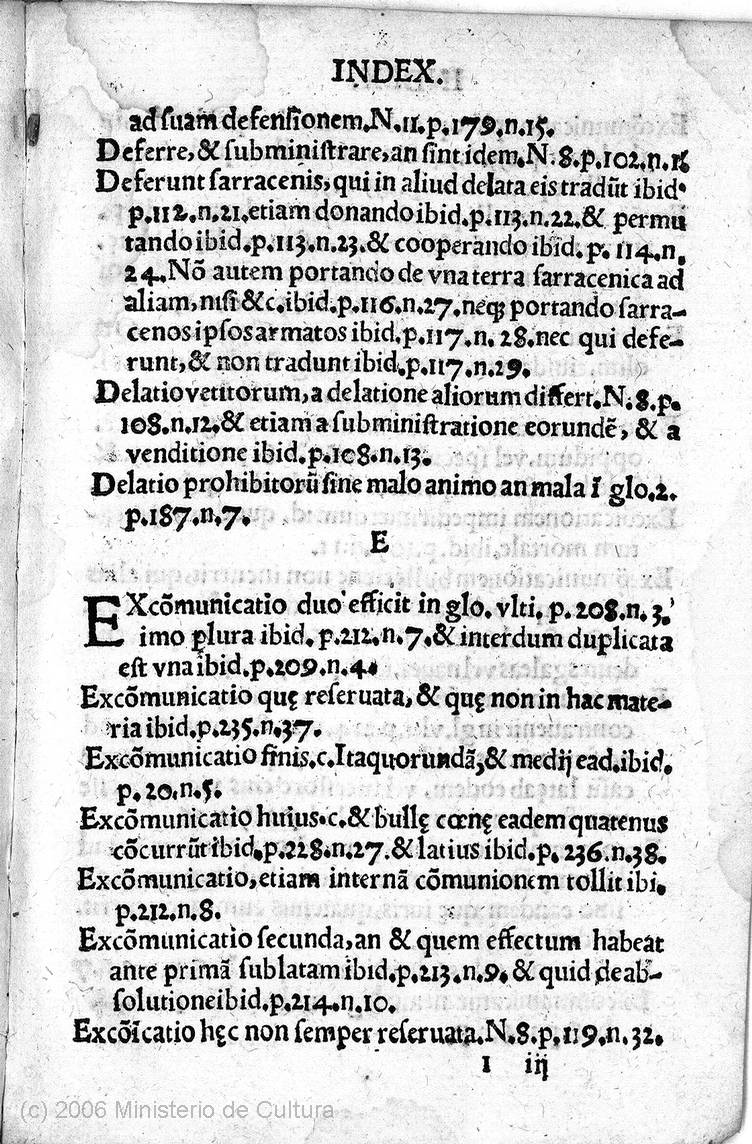 INDEX.
ad suam defensionem.N.11.p.179.n.15.
Deferre, & subministrare, an sint idem.N.8.p.102.n.1.
Deferunt sarracenis, qui in aliud delata eis tradũt ibid.
p.112.n.21.etiam donando ibid.p.113.n.22.& permu
tando ibid.p.113.n.23.& cooperando ibid. p. 114.n.
24.Nõ autem portando de vna terra sarracenica ad
aliam, nisi &c.ibid.p.116.n.27.neq; portando sarra-
cenos ipsos armatos ibid.p.117.n. 28.nec qui defe-
runt, & non tradunt ibid.p.117.n.29.
Delatio vetitorum, a delatione aliorum differt.N.8.p.
108.n.12.& etiam a subministratione eorundẽ, & a
venditione ibid.p.108.n.13.
Delatio prohibitorũ sine malo animo an mala ĩ glo.2.
p.187.n.7.
E
EXcõmunicatio duo efficit in glo. vlti. p. 208.n.3.
imo ꝑlura ibid. p.212.n.7.& interdum duplicata
est vna ibid.p.209.n.4.
Excõmunicatio quę reseruata, & quę non in hac mate-
ria ibid.p.235.n.37.
Excõmunicatio finis.c.Itaquorundã, & medij ead.ibid.
p.20.n.5.
Excõmunicatio huius.c.& bullę cœnę eadem quatenus
cõcurrũt ibid.p.228.n.27.& latius ibid.p. 236.n.38.
Excõmunicatio, etiam internã cõmunionem tollit ibi.
p.212.n.8.
Excõmunicatio secunda, an & quem effectum habeat
ante primã sublatam ibid.p.213.n.9. & quid de ab-
solutione ibid.p.214.n.10.
Excõĩcatio hęc non semper reseruata.N.8.p.119.n.32.
I iij
(c) 2006 Ministerio de Cultura